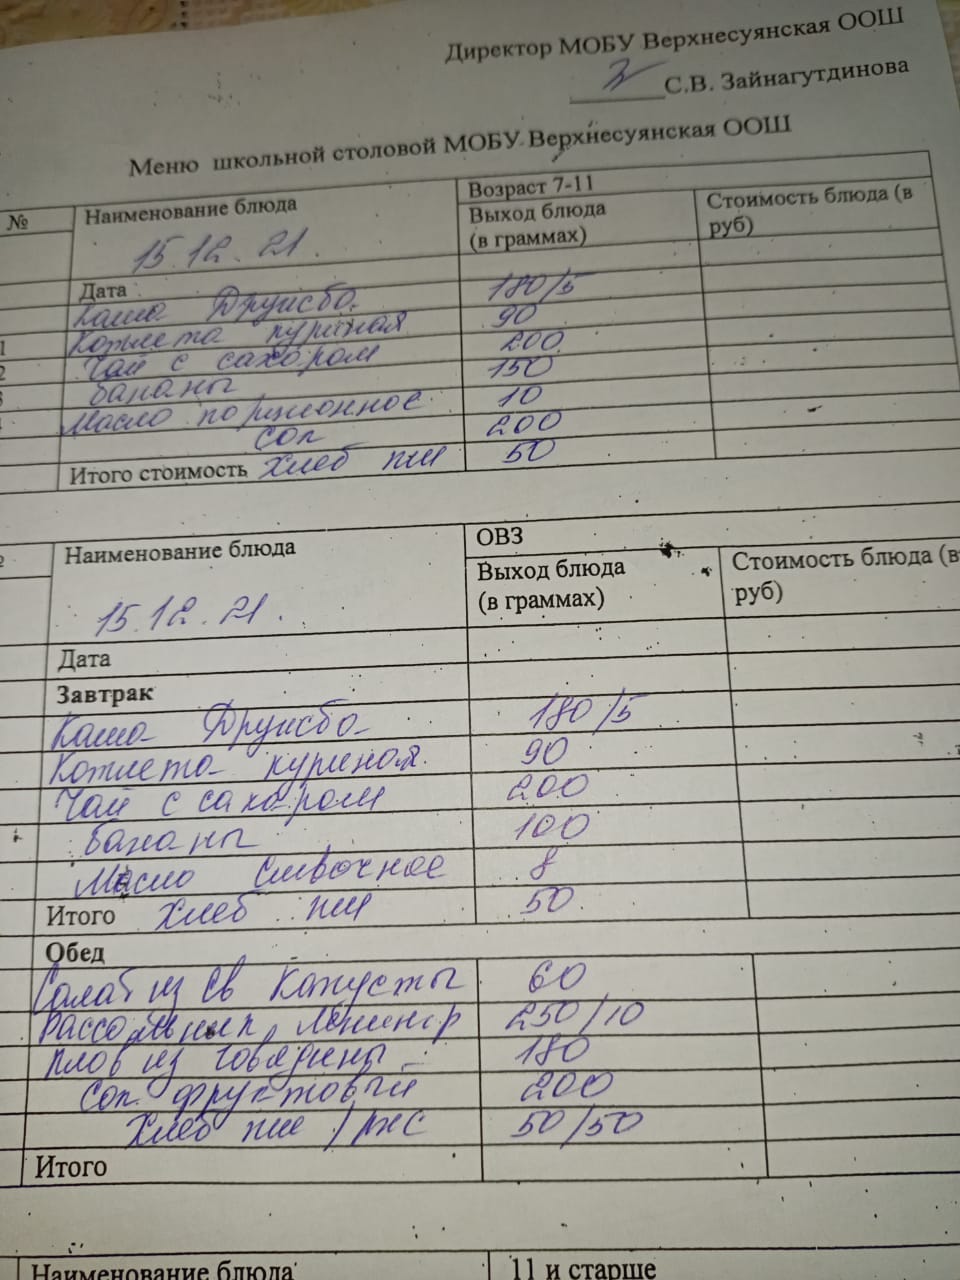 Директор МОБУ Верхнесуянская ООШ
С.В. Зайнагутдинова
Меню школьной столовой МОБУ Верхнесуянская ООШ
№ Наименование блюда Возраст 7-11
Выход блюда (в граммах) Стоимость блюда (в руб)
15.12.21.
Дата
Каша Дружба. 180/5
1 Котлета куриная 90
2 Чай с сахаром 200
3 бананы 150
Масло порционное 10
сок 200
Итого стоимость Хлеб пш 50
Наименование блюда ОВЗ
Выход блюда (в граммах) Стоимость блюда (в руб)
15.12.21.
Дата
Завтрак
Каша Дружба 180/5
Котлета куриная. 90
Чай с сахаром 200
бананы 100
Масло сливочное 8
Итого Хлеб пш 50
Обед
Салат из св капусты 60
Рассольник Ленингр 250/10
Плов из говядины 180
Сок фруктовый 200
Хлеб пш / рж 50/50
Итого
Наименование блюда 11 и старше